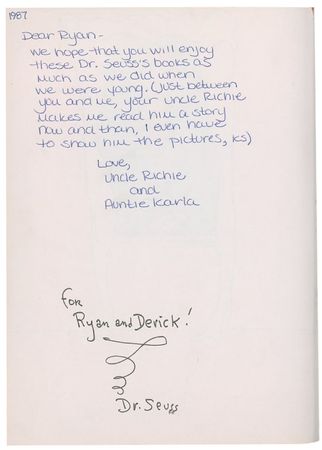 1987
Dear Ryan-
We hope that you will enjoy
these Dr. Seuss's books as
much as we did when
we were young. (Just between
you and me, your uncle Richie
makes me read him a story
now and then, I even have
to show him the pictures, ks)
Love,
Uncle Richie
and
Auntie Karla
for
Ryan and Derick!
Dr. Seuss